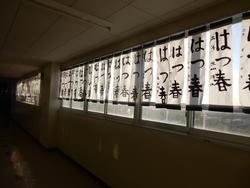 はつ春
はつ春
はつ春
はつ春
はつ春
はつ春
はつ春
はつ春
はつ春
はつ春